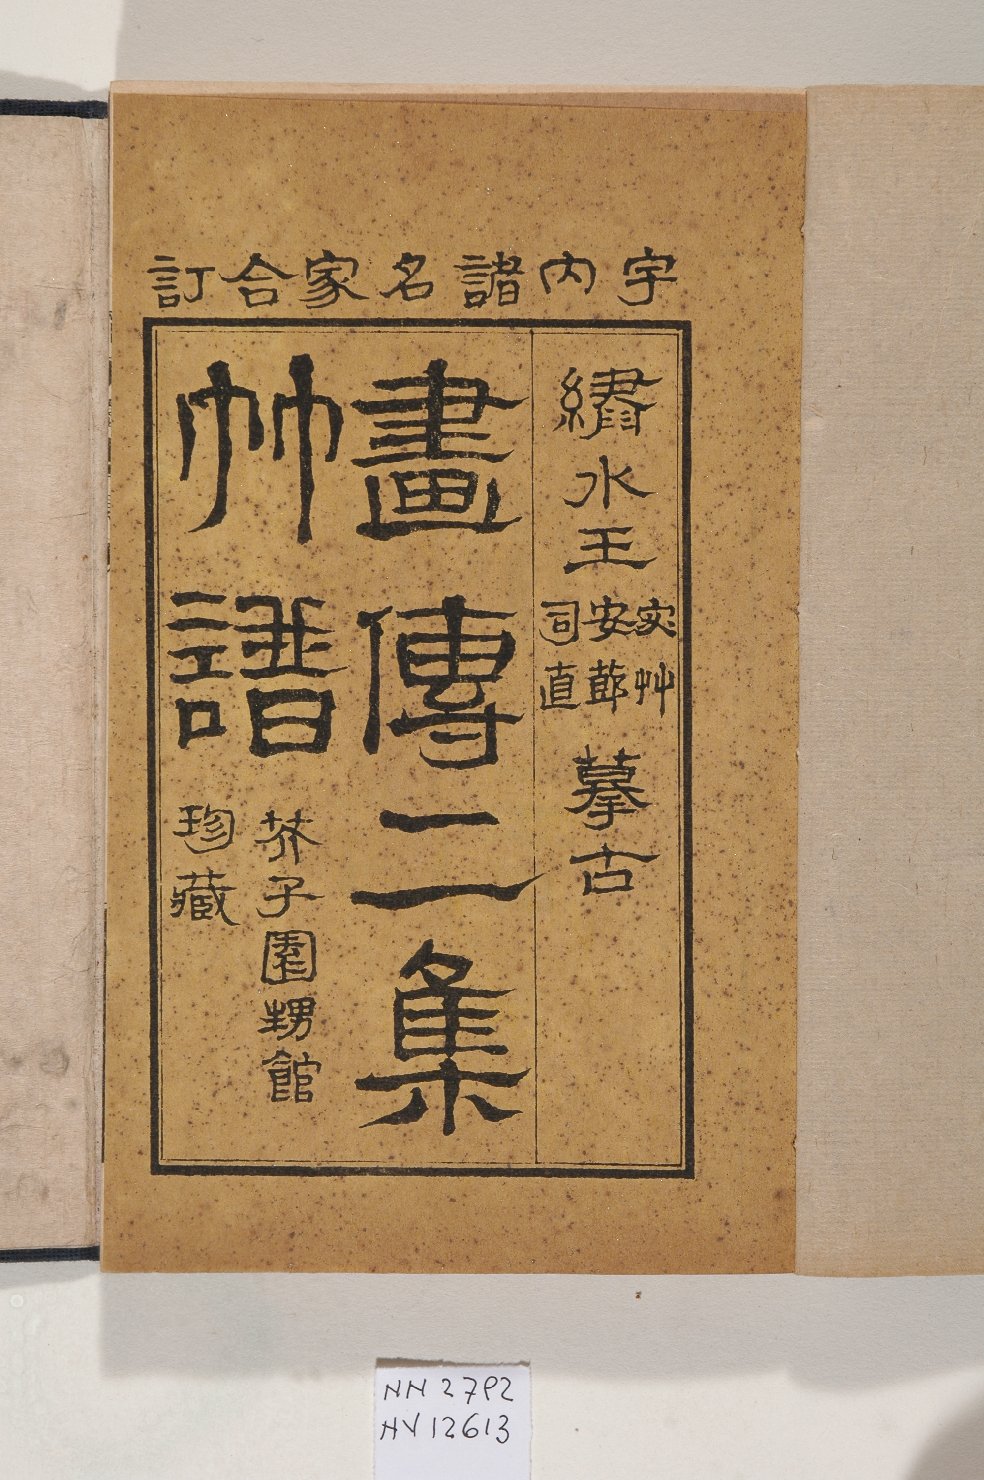 宇内諸名家合訂
繡水王宓艸安節司直摹古
畫傳二集
竹譜
芥子園甥館
珍藏
NN 2792
HV 12613